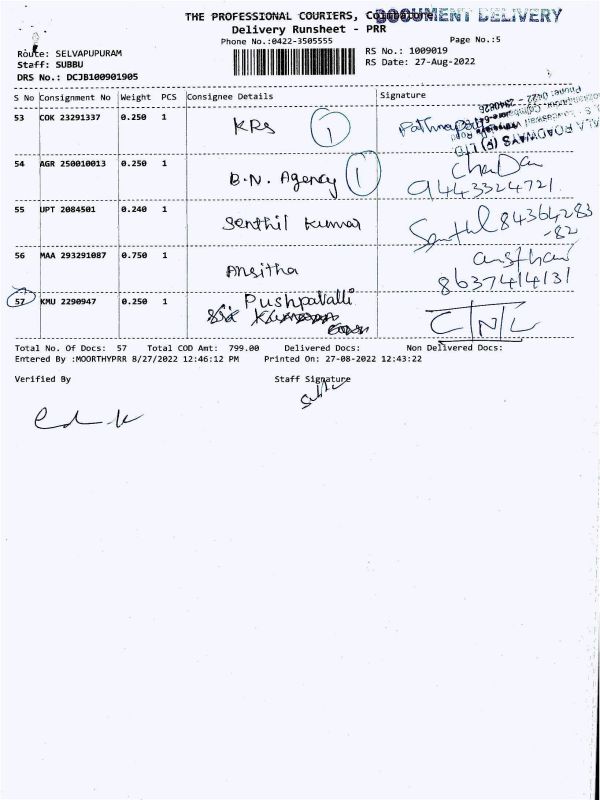 THE PROFESSIONAL COURIERS, Coimbatore
DOCUMENT DELIVERY
Delivery Runsheet - PRR
Phone No.:0422-3505555
Page No.:5
Route: SELVAPUPURAM
RS No.: 1009019
Staff: SUBBU
RS Date: 27-Aug-2022
DRS No.: DCJB100901905
S No Consignment No Weight PCS Consignee Details Signature
53 COK 23291337 0.250 1 KRS 1
ALA ROADWAYS (P) LTD
54 AGR 250010013 0.250 1 B.N. Agency 1
9443324721
55 UPT 2084501 0.240 1 Senthil Kumar Senthil 84364283
-82
56 MAA 293291087 0.750 1 Ansitha
8637414131
57 KMU 2290947 0.250 1 Pushpavalli C/N/L
Total No. Of Docs: 57 Total COD Amt: 799.00 Delivered Docs: Non Delivered Docs:
Entered By :MOORTHYPRR 8/27/2022 12:46:12 PM Printed On: 27-08-2022 12:43:22
Verified By Staff Signature
Subbu